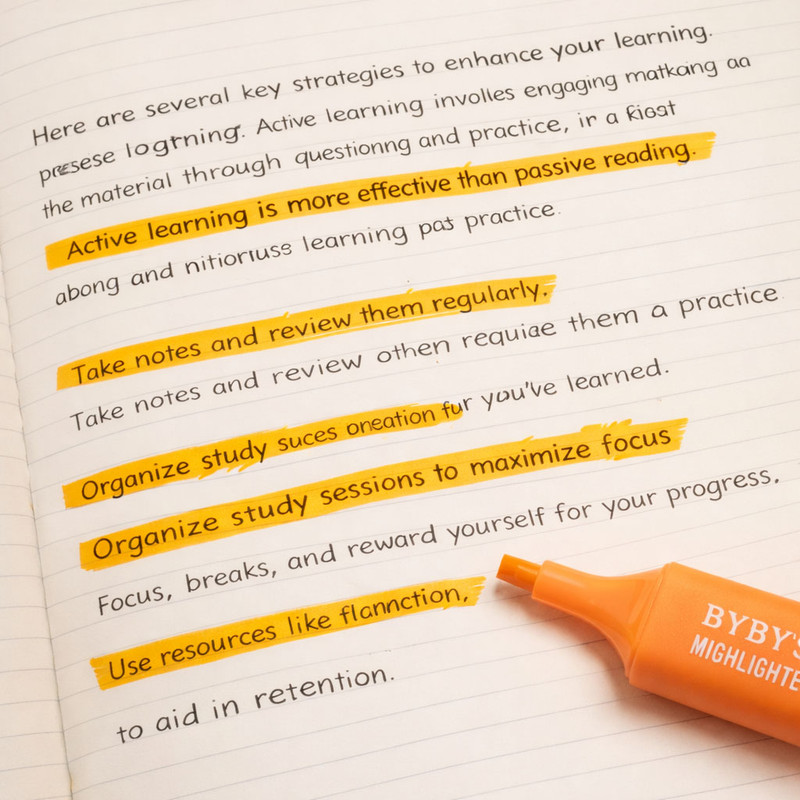 Here are several key strategies to enhance your learning.
presese logrning. Active learning involles engaging matkaing aa
the material through questionng and practice, in a kiost
Active learning is more effective than passive reading.
abong and nitioriuse learning pas practice.
Take notes and review them regularly.
Take notes and review othen requiae them a practice
Organize study suces oneation fur you've learned.
Organize study sessions to maximize focus
Focus, breaks, and reward yourself for your progress.
Use resources like flannction,
to aid in retention.
BYBY'S
MIGHLIGHTE